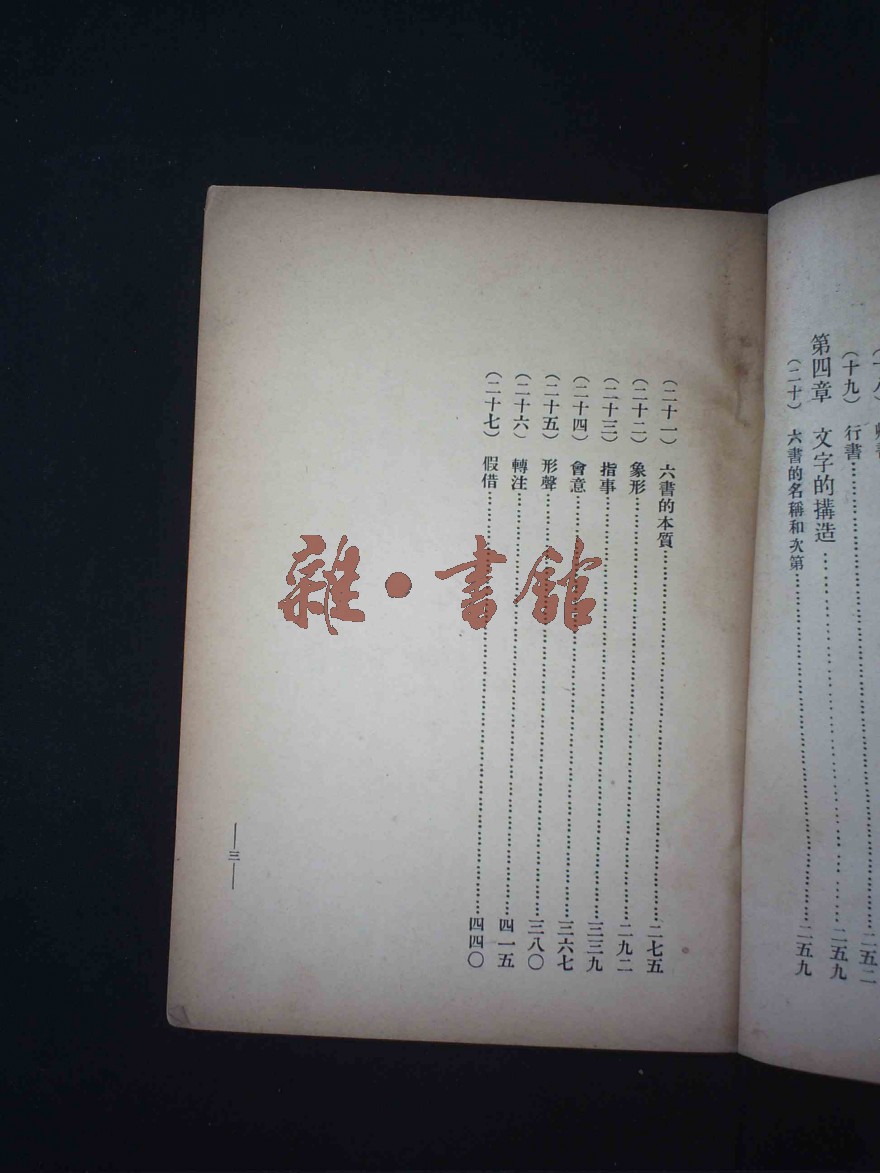 (十九) 行書 二五九
第四章 文字的構造
(二十) 六書的名稱和次第 二五九
(二十一) 六書的本質 二七五
(二十二) 象形 二九二
(二十三) 指事 三三九
(二十四) 會意 三六七
(二十五) 形聲 三八〇
(二十六) 轉注 四一五
(二十七) 假借 四四〇
三
雜·書館